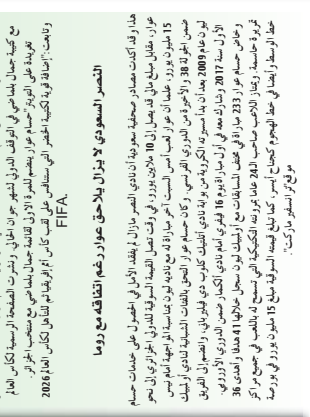 مع كتيبة جمال بلماضي في التوقف الدولي لشهر جوان الحالي. ونشرت الصفحة الرسمية لكأس العالم
تغريدة على التويتر "حسام عوار ينضم للمرة الأولى لقائمة جمال بلماضي مع منتخب الجزائر.
وتابعت: "إضافة قوية لكتيبة الخضر التي ستنافس على لقب كأس أم إفريقيا ثم للتأهل لكأس العالم 2026
FIFA.
النصر السعودي لا يزال يلاحق عوار رغم اتفاقه مع روما
هذا وقد أكدت مصادر صحفية سعودية أن نادي النصر مازال لم يفقد الأمل في الحصول على خدمات حسام
عوار، مقابل مبلغ مالي قد يصل إلى 10 ملايين يورو، في وقت تصل القيمة السوقية للدولي الجزائري إلى نحو
15 مليون يورو. علما أن عوار لعب أمس السبت آخر مباراة له مع ناديه ليون بمناسبة المواجهة أمام نيس
ضمن الجولة 38 والأخيرة من الدوري الفرنسي. وكان حسام عوار التحق بالفئات الشبانية لنادي أولمبيك
ليون عام 2009 بعد أن بدأ مسيرته الكروية من بوابة نادي أتلتيك كلوب دي فيليرباني، وانضم إلى الفريق
الأول سنة 2017 وشارك معه في أول مباراة يوم 16 فيفري أمام نادي ألكمار ضمن الدوري الأوروبي.
وخاض حسام عوار 233 مباراة في مختلف المسابقات مع أولمبيك ليون سجل خلالها 41 هدفا وأهدى 36
تمريرة حاسمة. ويمتاز اللاعب صاحب الـ24 عاما بمرونته التكتيكية التي تسمح له باللعب في جميع مراكز
خط الوسط وأيضا في خط الهجوم كجناح أيسر. كما تبلغ قيمته السوقية مبلغ 15 مليون يورو في بورصة
موقع "ترانسفير ماركت".